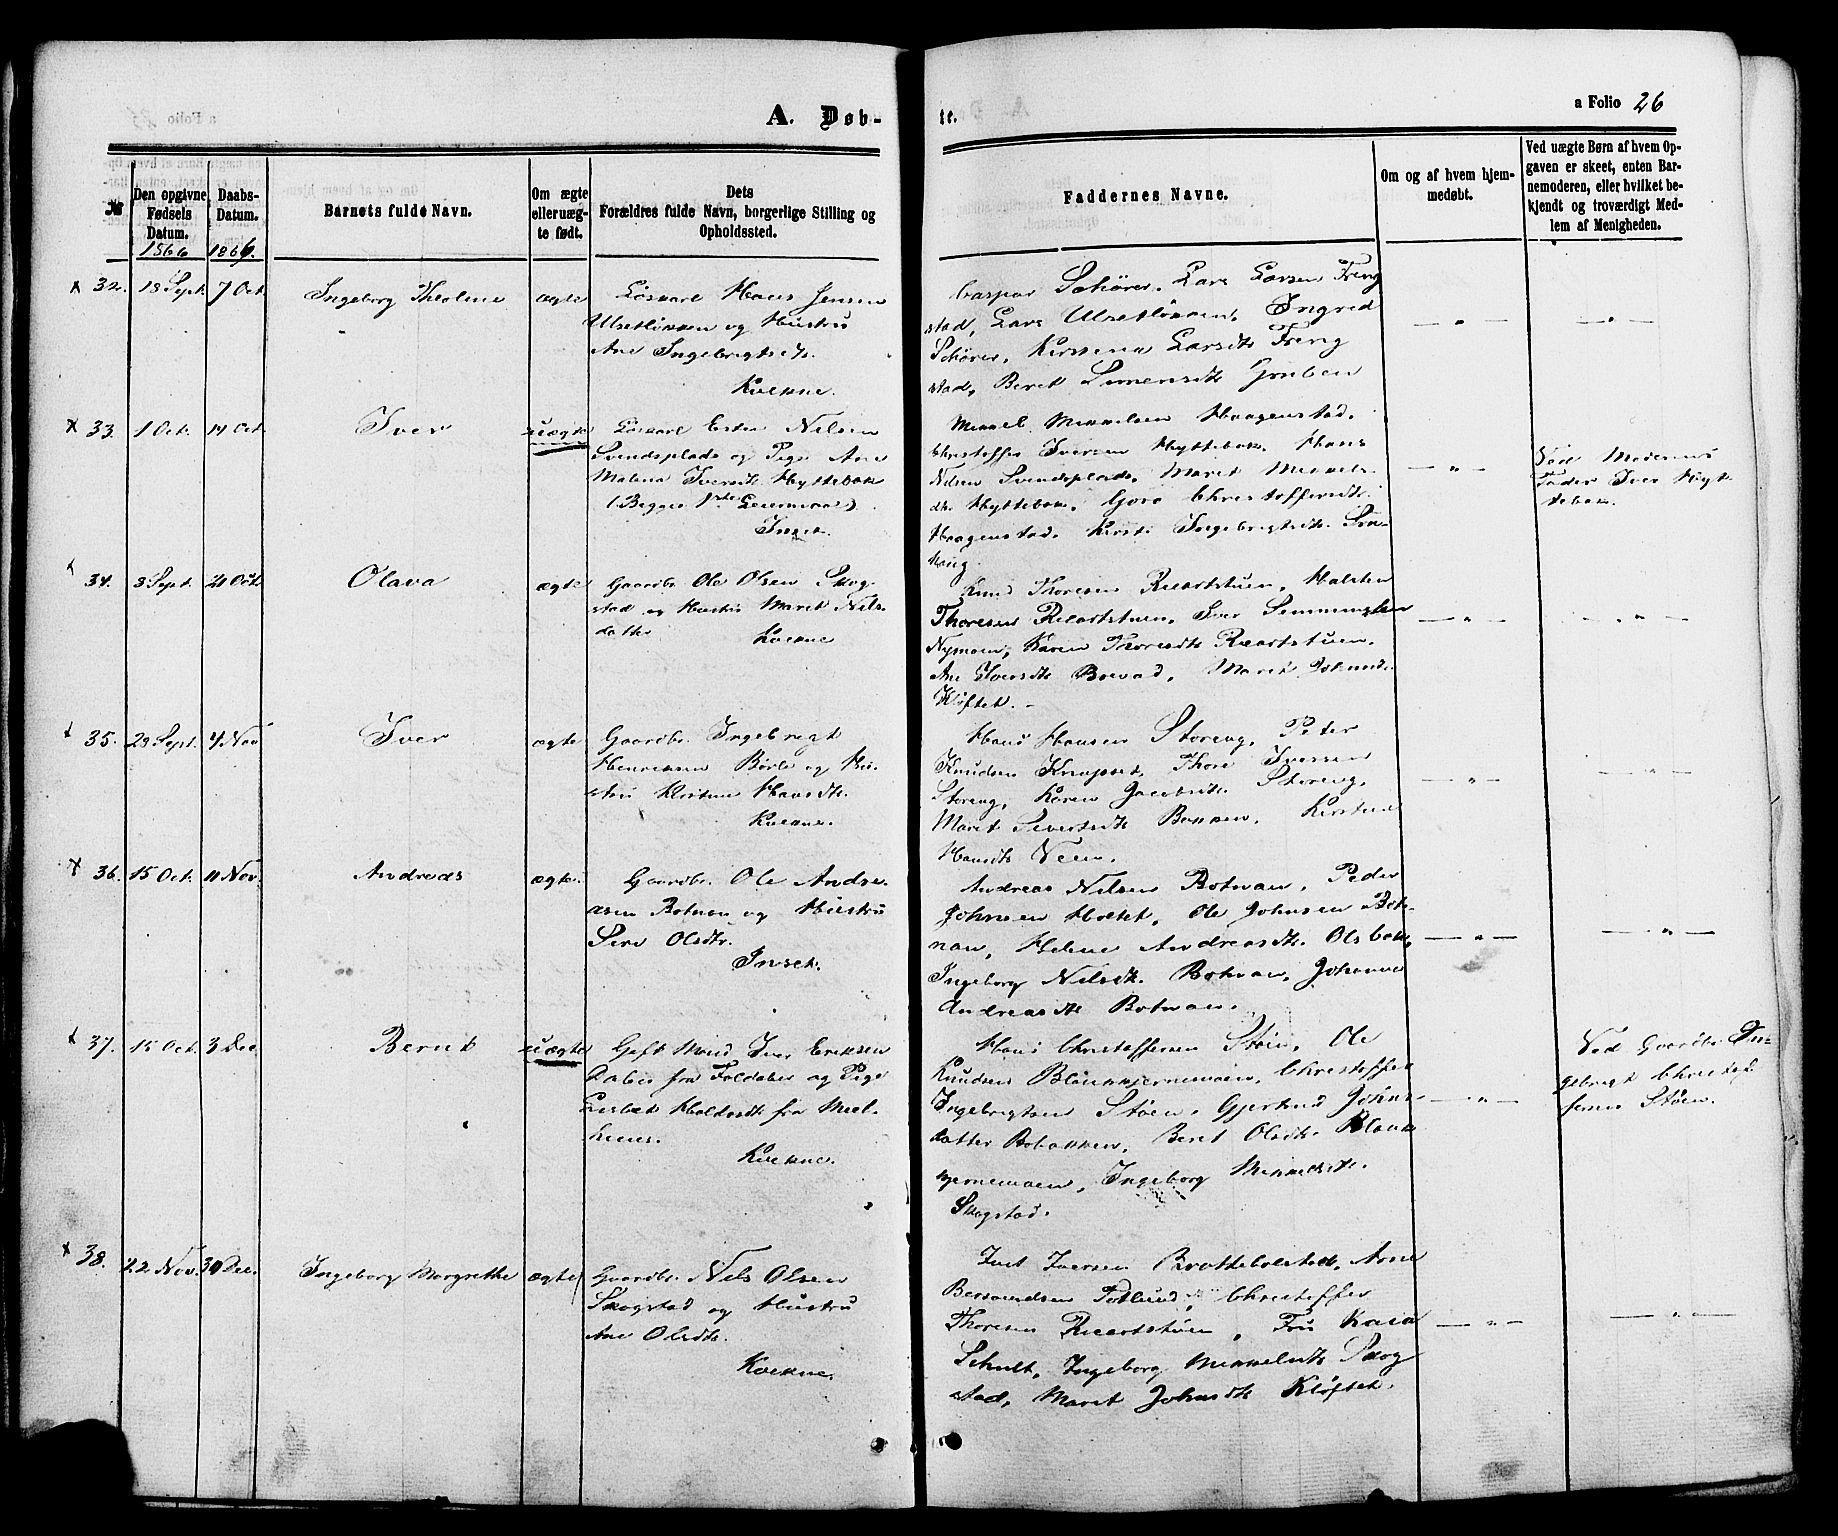 A. Døb-
te.
a Folio 26
№
Den opgivne
Fødsels
Datum.
1866
Daabs-
Datum.
1866.
Barnets fulde Navn.
Om ægte
eller uæg-
te født.
Dets
Forældres fulde Navn, borgerlige Stilling og
Opholdssted.
Faddernes Navne.
Om og af hvem hjem-
medøbt.
Ved uægte Børn af hvem Op-
gaven er skeet, enten Bar-
nemoderen, eller hvilket be-
kjendt og troværdigt Med-
lem af Menigheden.
32. 18 Sept. 7 Oct. Ingeborg Theoline ægte
Løskarl Hans Jensen
Ulsetløkken og Hustru
Ane Ingebrigtsdt.
Kvikne.
Caspar Schører, Lars Larsen Freng
stad, Lars Ulsetløkken, Ingred
Schører, Kirstina Larsdt. Freng
stad, Beret Simensdt. Gruben
33. 1 Oct. 14 Oct. Iver uægte
Løskarl Esten Nilsen
Svendsplads og Pige Ane
Malena Iversdt. Hyttebak
(Begges 1ste Leiermaal)
Inset.
Mikkel Mikkelsen Haagenstad,
Christoffer Iversen Hyttebak, Hans
Nilsen Svendsplads, Maret Mikkels-
dt. Hyttebak, Goro Christoffersdt.
Haagenstad, Kirsti Ingebrigtsdt.
haug.
Ved Moderens
Fader Iver Hyt
tebak.
34. 3 Sept. 21 Oct. Olava ægte
Gaardbr. Ole Olsen Skog-
stad og Hustru Maret Nils-
datter Kvikne
Knud Thoresen Reeartstuen, Halsten
Thoresen Reeartstuen, Iver Semmingsen
Nymoen, Karen Thoresdt. Reeartstuen,
Ane Iversdt. Brevad, Maret
Kløftet.
35. 29 Sept. 4 Nov. Iver ægte
Gaardbr. Ingebrigt
Henriksen Børli og Hu-
stru Kirstine Hansdt.
Kvikne.
Hans Hansen Storeng, Peter
Knudsen Knapset, Thore Iversen
Storeng, Karen Jacobsdt. Storeng,
Maret Sivertsdt. Bakken, Kirstine
Hansdt. Veen.
36. 15 Oct. 11 Nov. Andreas ægte.
Gaardbr. Ole Andre-
asen Botnan og Hustru
Siri Olsdtr.
Inset.
Andreas Nilsen Botnan, Peder
Johnsen Hætet, Ole Johnsen Bot-
nan, Helene Andreasdt. Olsbak,
Ingeborg Nilsdt. Botnan, Johanna
Andreasdt. Botnan.
37. 15 Oct. 3 Dec. Bernt uægte
Gift Mand Iver Eriksen
Dalen fra Foldalen og Pige
Lisbet Haldosdt. fra Meel-
huus.
Kvikne.
Hans Christoffersen Støen, Ole
Knudsen Blankkjernemoen, Christoffer
Ingebrigtsen Støen, Gjertrud Johns-
datter Bobakken, Beret Olsdt. Blank
kjernemoen, Ingeborg Mikkelsdt.
Skogstad.
Ved Gaardbr. In-
gebrigt Christof
fersen Støen.
38. 22 Nov. 30 Dec. Ingeborg Margrethe ægte
Gaardbr. Nils Olsen
Skogstad og Hustru
Ane Olsdt.
Kvikne.
Iver Iversen Brattebolstad, Arne
Bersvendsen Fotlund, Christoffer
Thoresen Reeartstuen, Fru Kaia
Schult, Ingeborg Mikkelsdt. Skog
stad, Maret Johnsdt. Kløftet.